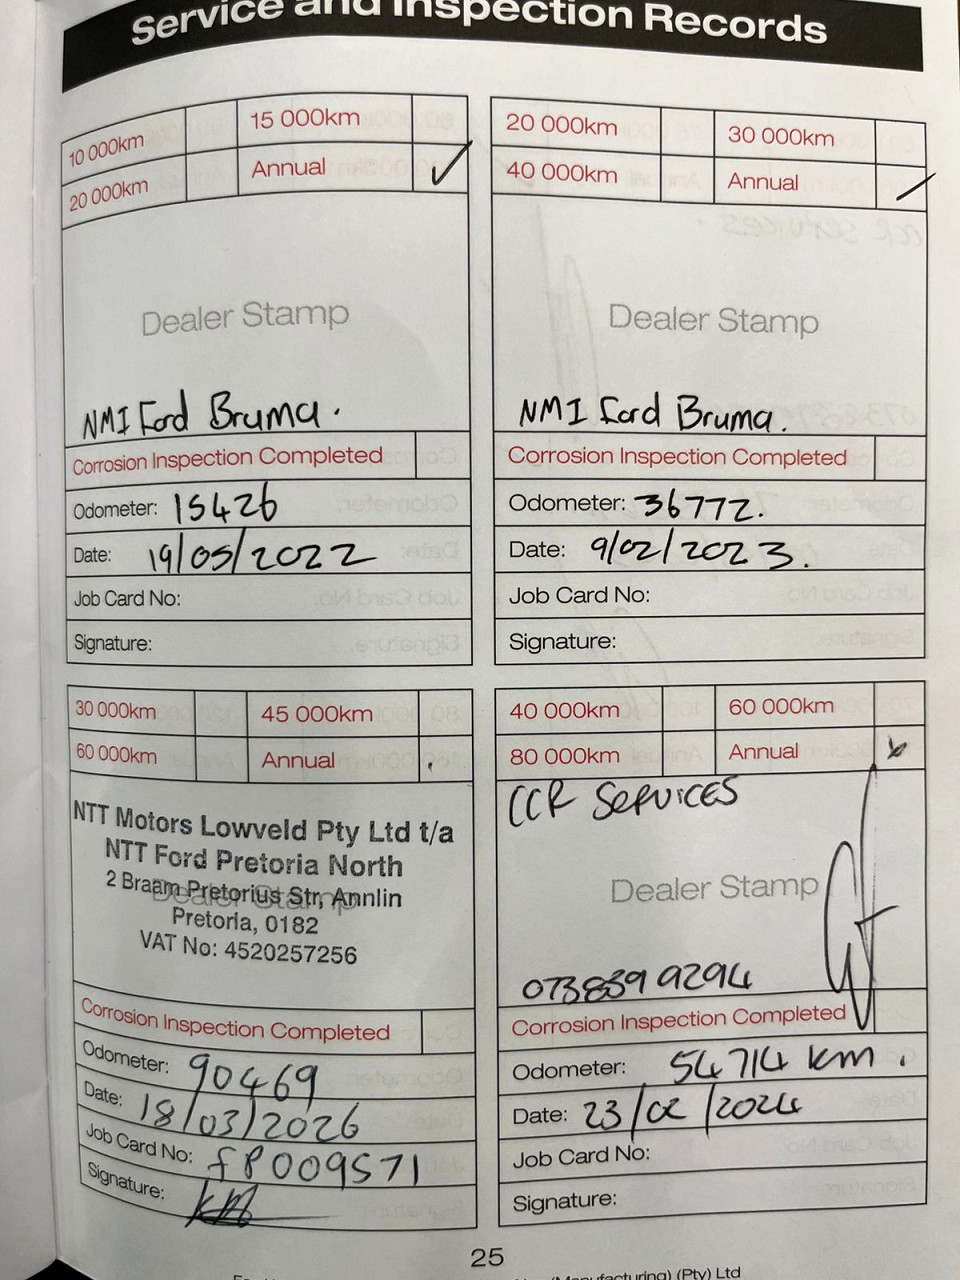 Service and Inspection Records
10 000km
15 000km
20 000km
Annual ✓
Dealer Stamp
NMI Ford Bruma.
Corrosion Inspection Completed
Odometer: 15426
Date: 19/05/2022
Job Card No:
Signature:
20 000km
30 000km
40 000km
Annual
Dealer Stamp
NMI Ford Bruma.
Corrosion Inspection Completed
Odometer: 36772.
Date: 9/02/2023.
Job Card No:
Signature:
30 000km
45 000km
60 000km
Annual
NTT Motors Lowveld Pty Ltd t/a
NTT Ford Pretoria North
2 Braam Pretorius Str, Annlin
Dealer Stamp
Pretoria, 0182
VAT No: 4520257256
Corrosion Inspection Completed
Odometer: 90469
Date: 18/03/2026
Job Card No: fP009571
Signature:
40 000km
60 000km
80 000km
Annual
CCR SERVICES
Dealer Stamp
073 839 9294
Corrosion Inspection Completed
Odometer: 54714 km.
Date: 23/02/2024
Job Card No:
Signature:
25
(Pty) Ltd